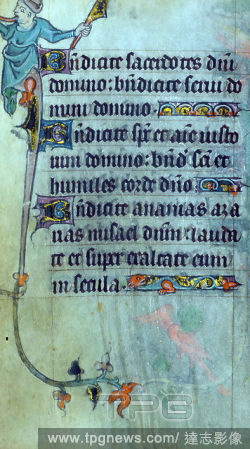 Bndicite sacerdotes dni
domino: bndicite serui do
mini domino
Bndicite sps et aie iusto
rum domino: bnd sci et
humiles corde dno
Bndicite ananias aza
rias misael dnm: laudate
te et super exaltate eum
in secula.
TPG
www.tpgnews.com/達志影像